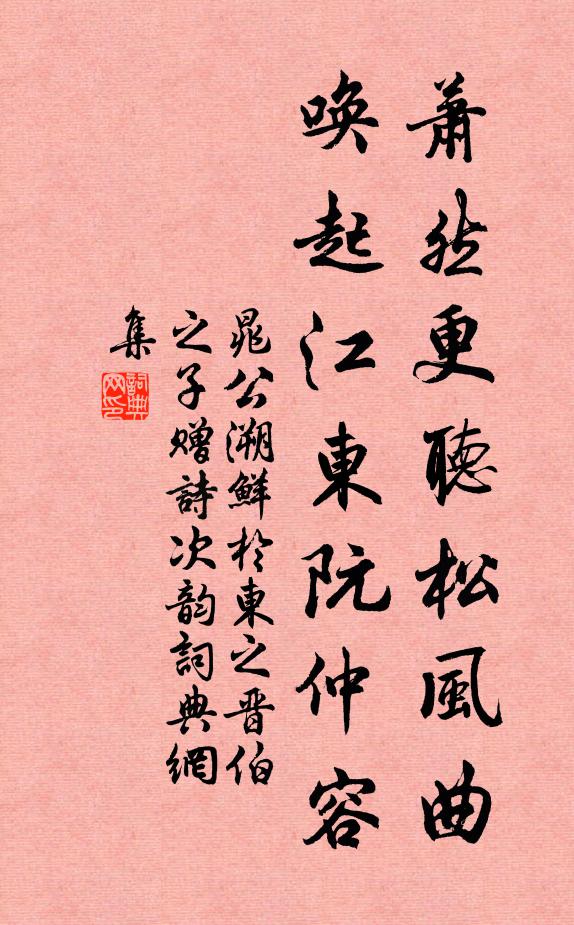 蕭然更聽松風曲
喚起江東阮仲容
晁公溯鮮於東之晋伯
之子贈詩次韵詞典網
集
詞典网印